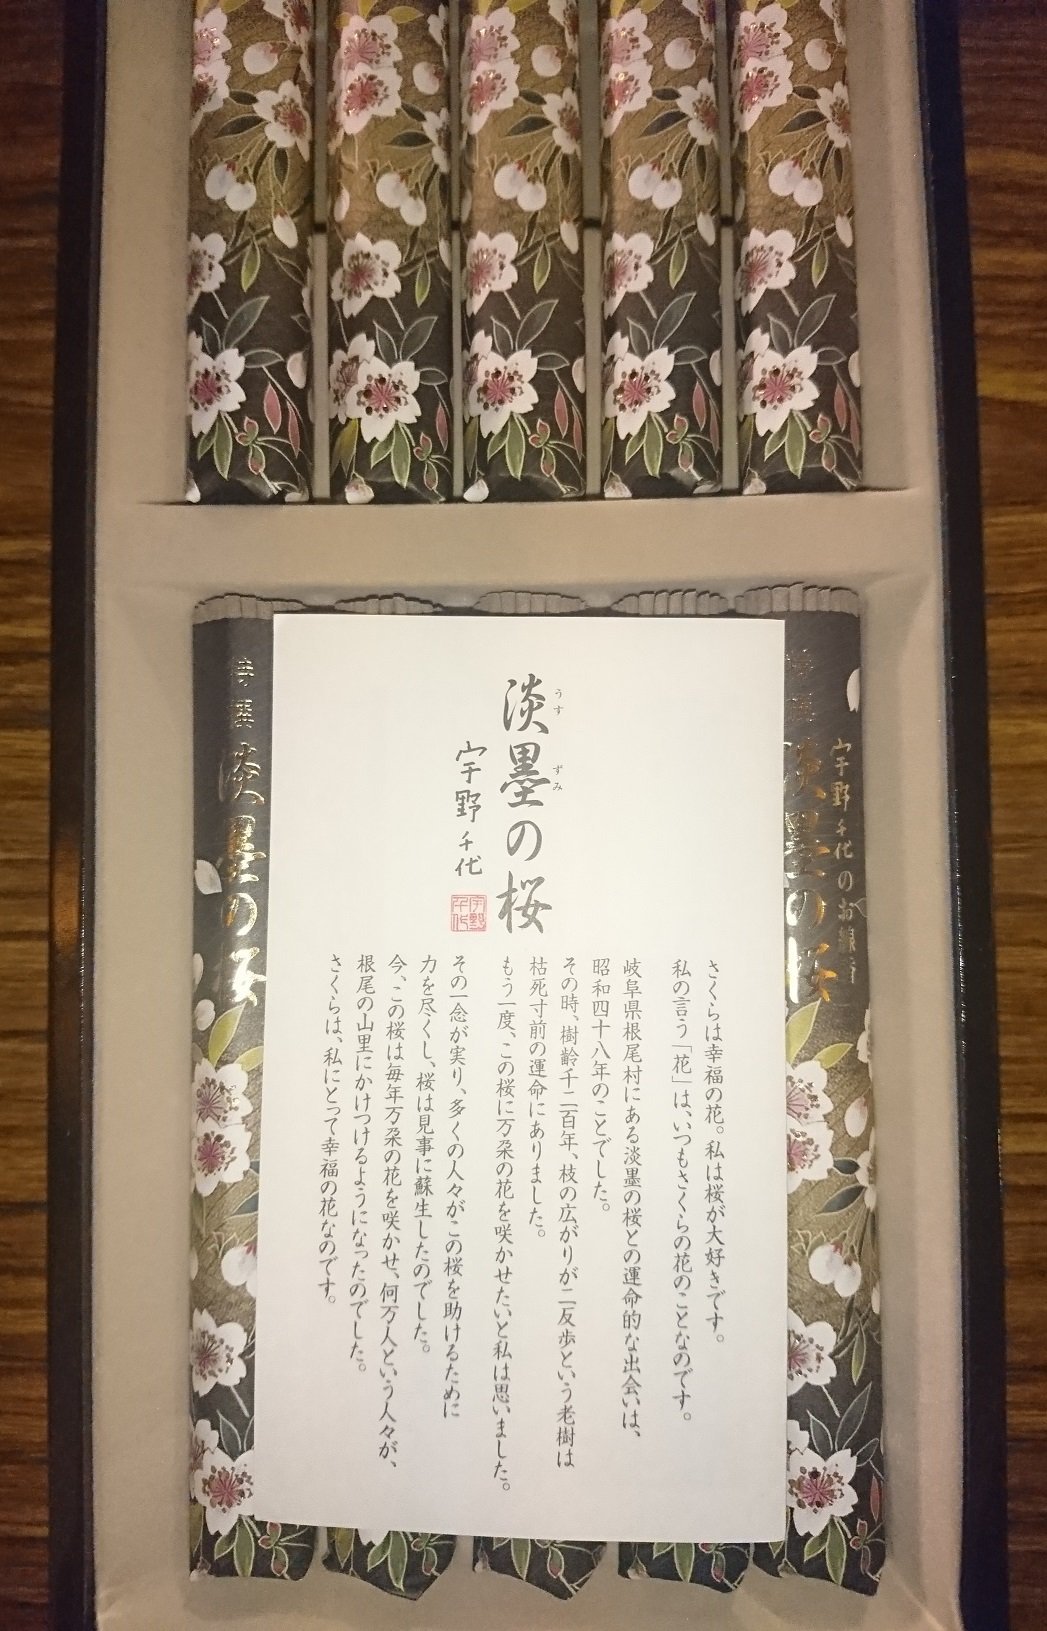 淡墨の桜
うすずみ
宇野千代
宇野千代
さくらは幸福の花。私は桜が大好きです。
私の言う「花」は、いつもさくらの花のことなのです。
岐阜県根尾村にある淡墨の桜との運命的な出会いは、
昭和四十八年のことでした。
その時、樹齢千二百年、枝の広がりが二反歩という老樹は
枯死寸前の運命にありました。
もう一度、この桜に万朶の花を咲かせたいと私は思いました。
その一念が実り、多くの人々がこの桜を助けるために
力を尽くし、桜は見事に蘇生したのでした。
今、この桜は毎年万朶の花を咲かせ、何万人という人々が、
根尾の山里にかけつけるようになったのでした。
さくらは、私にとって幸福の花なのです。
宇野千代のお線香
特選 淡墨の桜
特選 淡墨の桜